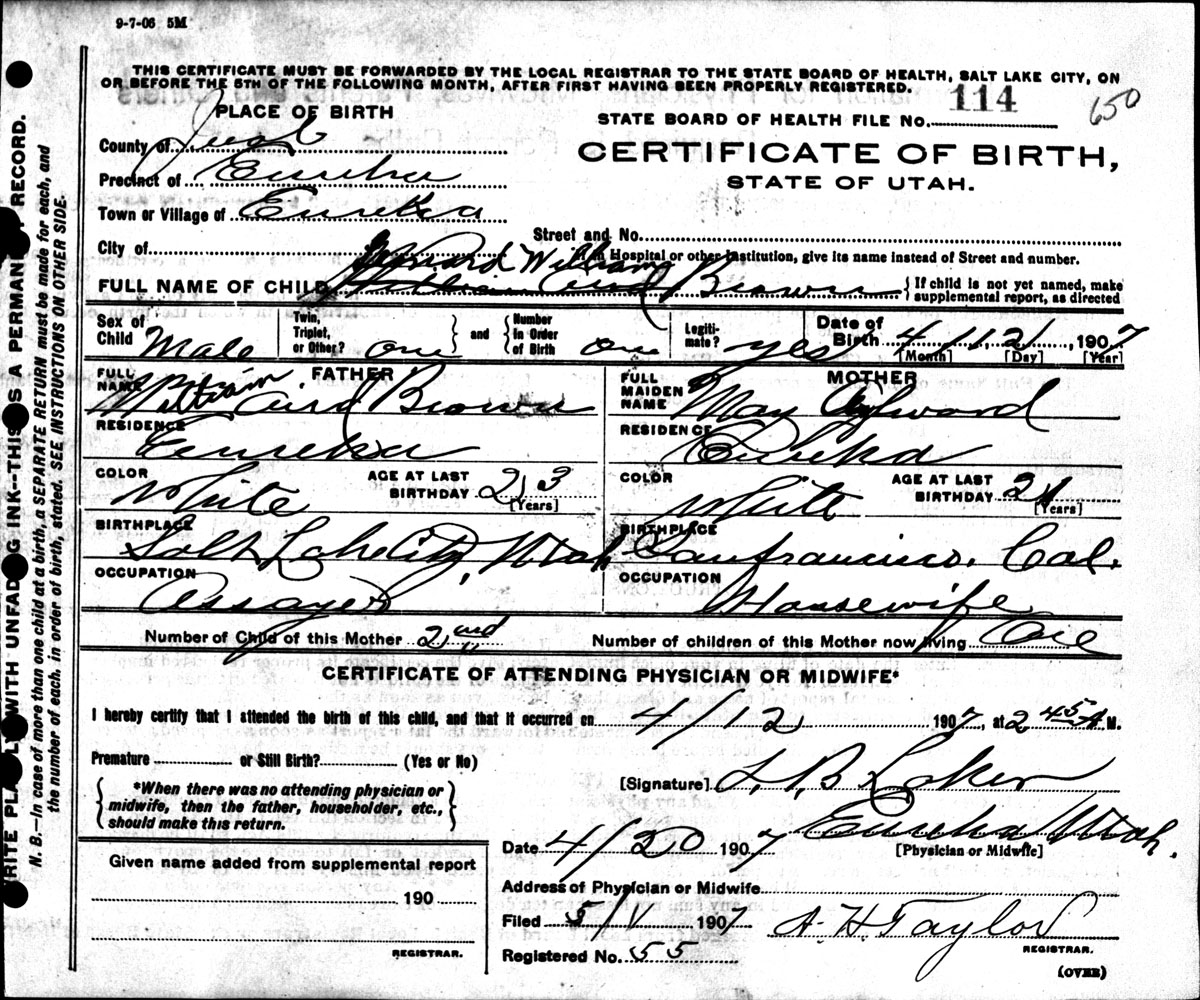 9-7-06 5M
THIS CERTIFICATE MUST BE FORWARDED BY THE LOCAL REGISTRAR TO THE STATE BOARD OF HEALTH, SALT LAKE CITY, ON
OR BEFORE THE 5TH OF THE FOLLOWING MONTH, AFTER FIRST HAVING BEEN PROPERLY REGISTERED.
PLACE OF BIRTH
STATE BOARD OF HEALTH FILE NO. 114 650
County of Juab
CERTIFICATE OF BIRTH,
STATE OF UTAH.
Precinct of Eureka
Town or Village of Eureka
Street and No.
City of
If in Hospital or other Institution, give its name instead of Street and number.
William
FULL NAME OF CHILD Brown { If child is not yet named, make
supplemental report, as directed
Sex of Child Male Twin, Triplet, or Other? one and Number in Order of Birth one Legitimate? yes Date of Birth 4 / 12 / , 1907
[Month] [Day] [Year]
FATHER
FULL NAME Brown
RESIDENCE Eureka
COLOR White AGE AT LAST BIRTHDAY 23 [Years]
BIRTHPLACE Salt Lake City, Utah
OCCUPATION Assayer
MOTHER
FULL MAIDEN NAME May Aylward
RESIDENCE Eureka
COLOR White AGE AT LAST BIRTHDAY 21 [Years]
BIRTHPLACE San francisco. Cal.
OCCUPATION Housewife
Number of Child of this Mother 2nd Number of children of this Mother now living One
CERTIFICATE OF ATTENDING PHYSICIAN OR MIDWIFE*
I hereby certify that I attended the birth of this child, and that it occurred on 4/12 1907, at 2 45 A.M.
Premature or Still Birth? (Yes or No)
*When there was no attending physician or
midwife, then the father, householder, etc.,
should make this return.
[Signature] B Laker
Eureka Utah.
Date 4/20 1907 [Physician or Midwife]
Given name added from supplemental report
190
REGISTRAR.
Address of Physician or Midwife
Filed 5/1 1907 A. H Taylor
REGISTRAR.
Registered No. 55
(OVER)
WRITE PLAINLY WITH UNFADING INK--THIS IS A PERMANENT RECORD.
N. B.—In case of more than one child at a birth, a SEPARATE RETURN must be made for each, and
the number of each, in order of birth, stated. SEE INSTRUCTIONS ON OTHER SIDE.